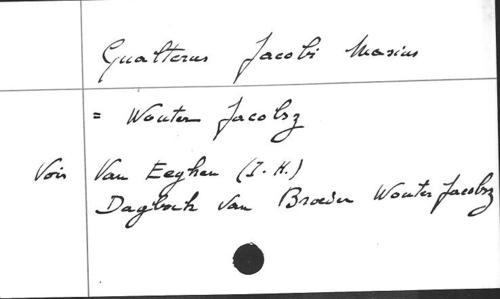 Gualterus Jacobi Masius
= Wouter Jacobsz
Voir Van Eeghen (I.H.)
Dagboek van Broeder Wouter Jacobsz